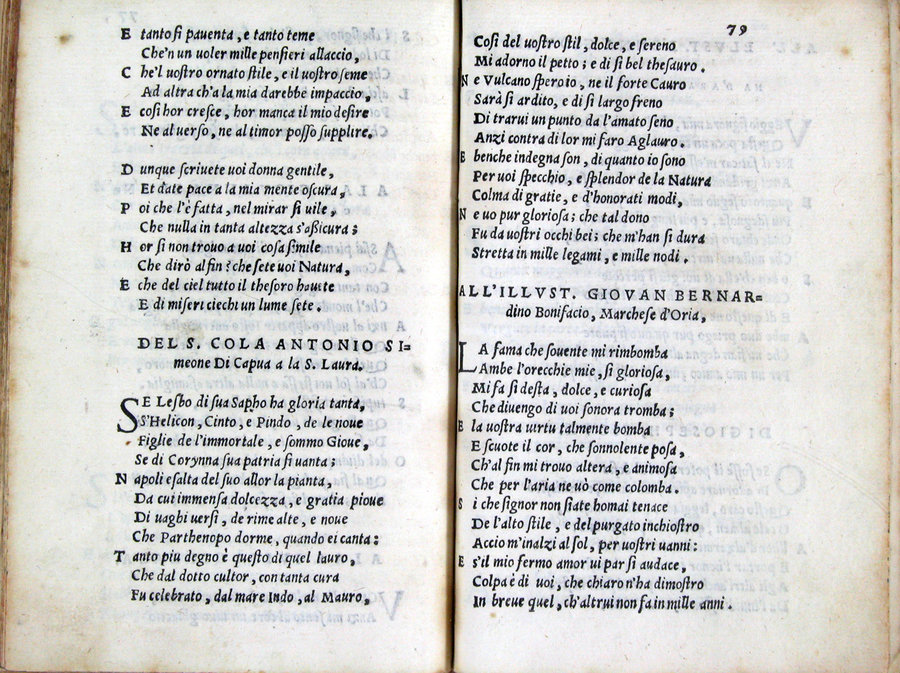 E tanto si pauenta, e tanto teme
Che'n un uoler mille pensieri allaccio,
C he'l uostro ornato stile, e il uostro seme
Ad altra ch'a la mia darebbe impaccio,
E cosi hor cresce, hor manca il mio desire
Ne al uerso, ne al timor posso supplire.
D unque scriuete uoi donna gentile,
Et date pace a la mia mente oscura,
P oi che l'è fatta, nel mirar si uile,
Che nulla in tanta altezza s'assicura;
H or si non trouo a uoi cosa simile
Che dirò al fin? che sete uoi Natura,
E che del ciel tutto il thesoro haute
E di miseri ciechi un lume sete.
DEL S. COLA ANTONIO SI=
meone Di Capua a la S. Laura.
SE Lesbo di sua Sapho ha gloria tanta,
S'Helicon, Cinto, e Pindo, de le noue
Figlie de l'immortale, e sommo Gioue,
Se di Corynna sua patria si uanta;
N apoli esalta del suo allor la pianta,
Da cui immensa dolcezza, e gratia pioue
Di uaghi uersi, de rime alte, e noue
Che Parthenopo dorme, quando ei canta:
T anto piu degno è questo di quel lauro,
Che dal dotto cultor, con tanta cura
Fu celebrato, dal mare Indo, al Mauro,
79
Cosi del uostro stil, dolce, e sereno
Mi adorno il petto; e di si bel thesauro.
N e Vulcano speroio, ne il forte Cauro
Sarà si ardito, e di si largo freno
Di trarui un punto da l'amato seno
Anzi contra di lor mi faro Aglauro.
E benche indegna son, di quanto io sono
Per uoi specchio, e splendor de la Natura
Colma di gratie, e d'honorati modi,
N e uo pur gloriosa; che tal dono
Fu da uostri occhi bei; che m'han si dura
Stretta in mille legami, e mille nodi.
ALL'ILLVST. GIOVAN BERNAR=
dino Bonifacio, Marchese d'Oria,
LA fama che souente mi rimbomba
Ambe l'orecchie mie, si gloriosa,
Mi fa si desta, dolce, e curiosa
Che diuengo di uoi sonora tromba;
E la uostra uirtu talmente bomba
E scuote il cor, che sonnolente posa,
Ch'al fin mi trouo altera, e animosa
Che per l'aria ne uò come colomba.
S i che signor non siate homai tenace
De l'alto stile, e del purgato inchiostro
Accio m'inalzi al sol, per uostri uanni:
E s'il mio fermo amor ui par si audace,
Colpa è di uoi, che chiaro n'ha dimostro
In breue quel, ch'altrui non fa in mille anni.